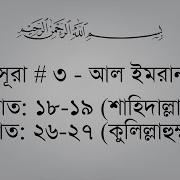 بسم الله الرحمن الرحيم
সূরা # ৩ - আল ইমরান
াত: ১৮-১৯ (শাহিদাল্লা
াত: ২৬-২৭ (কুলিল্লাহুম্ম